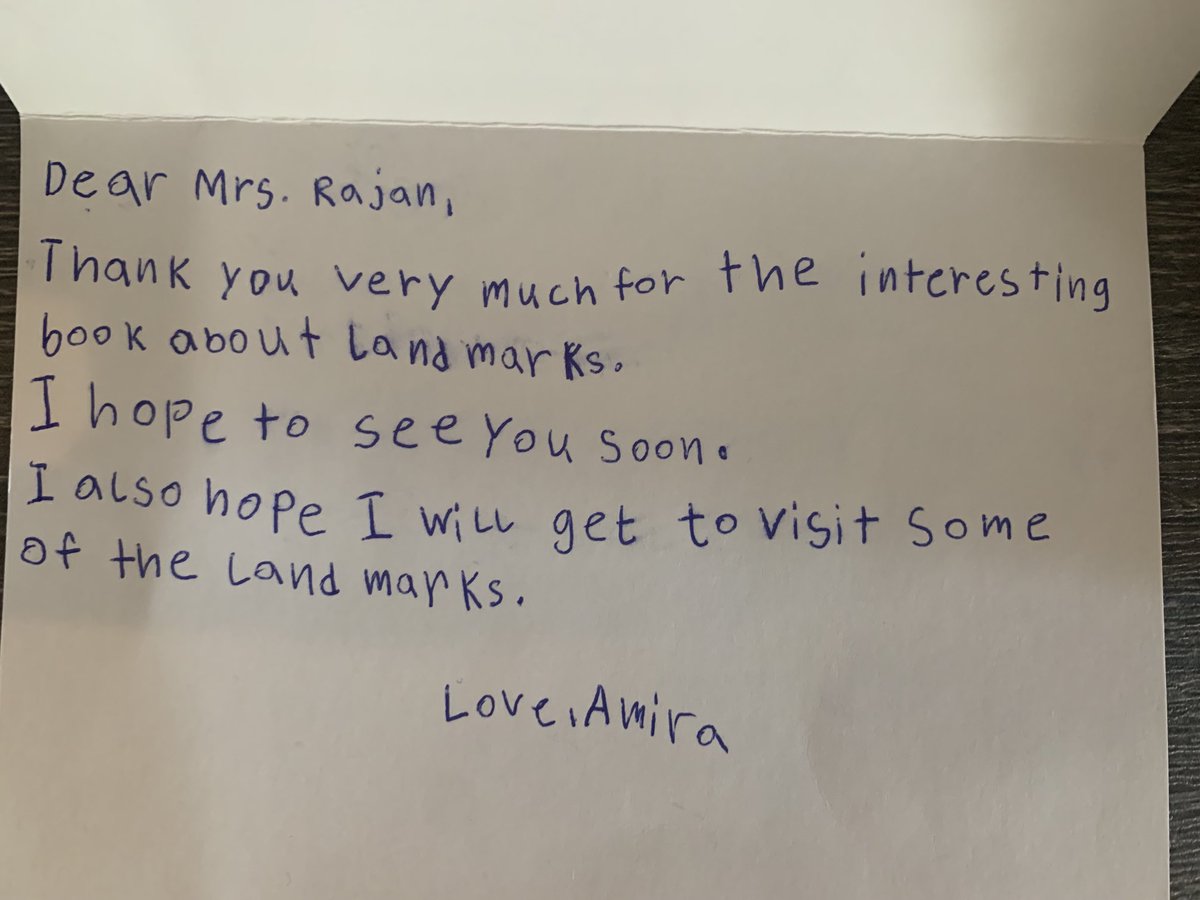 Dear Mrs. Rajan,
Thank you very much for the interesting
book about Landmarks.
I hope to see you soon.
I also hope I will get to visit some
of the Land marks.
Love, Amira